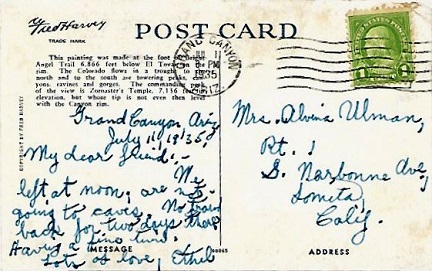 Fred Harvey
TRADE MARK
POST CARD
This painting was made at the foot of Bright
Angel Trail 6,866 feet below El Tovar on
rim. The Colorado flows in a trough to
north and to the south are towering peaks,
yons, ravines and gorges. The commanding
of the view is Zoroaster's Temple, 7,136 feet
elevation, but whose tip is not even level
with the Canyon rim.
GRAND CANYON
PM
1935
ARIZ.
COPYRIGHT BY FRED HARVEY
Grand Canyon Ariz
July 11, 1935.
My dear friend:-
We
left at noon; are not
going to caves. No train
back for two days there
Having a fine time.
Lots of love, Ethel
MESSAGE
Mrs. Alvina Ulman,
Rt. 1
S. Narbonne Ave,
Lomita,
Calif.
ADDRESS